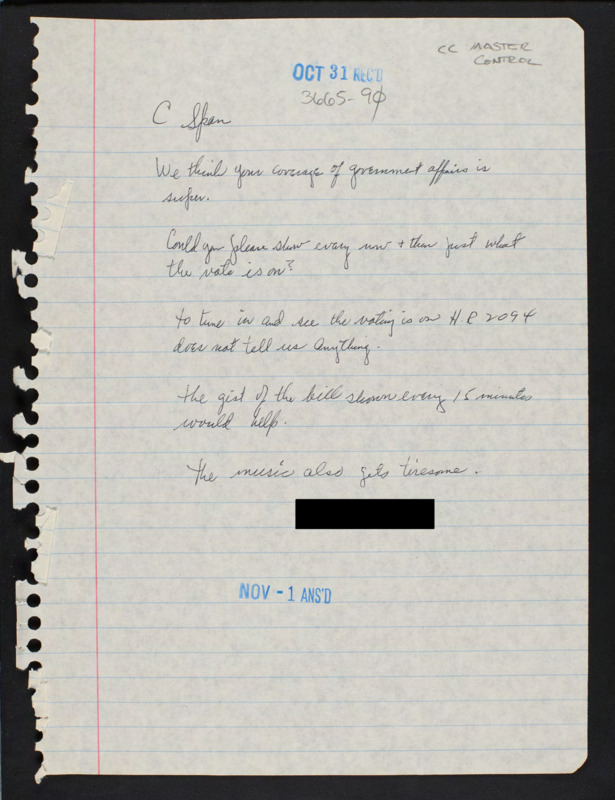 CC MASTER
CONTROL
OCT 31 REC'D
3665-90
C Span
We think your coverage of government affairs is
super.
Could you please show every now + then just what
the vote is on?
To tune in and see the voting is on H R 2094
does not tell us anything.
The gist of the bill shown every 15 minutes
would help.
The music also gets tiresome.
NOV - 1 ANS'D